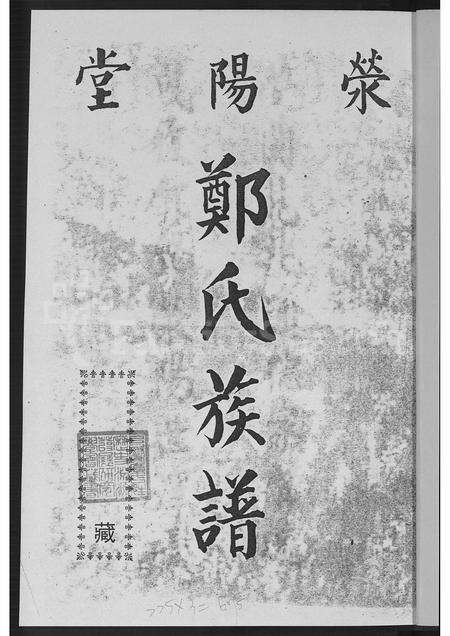 滎陽堂
鄭氏族譜
藏